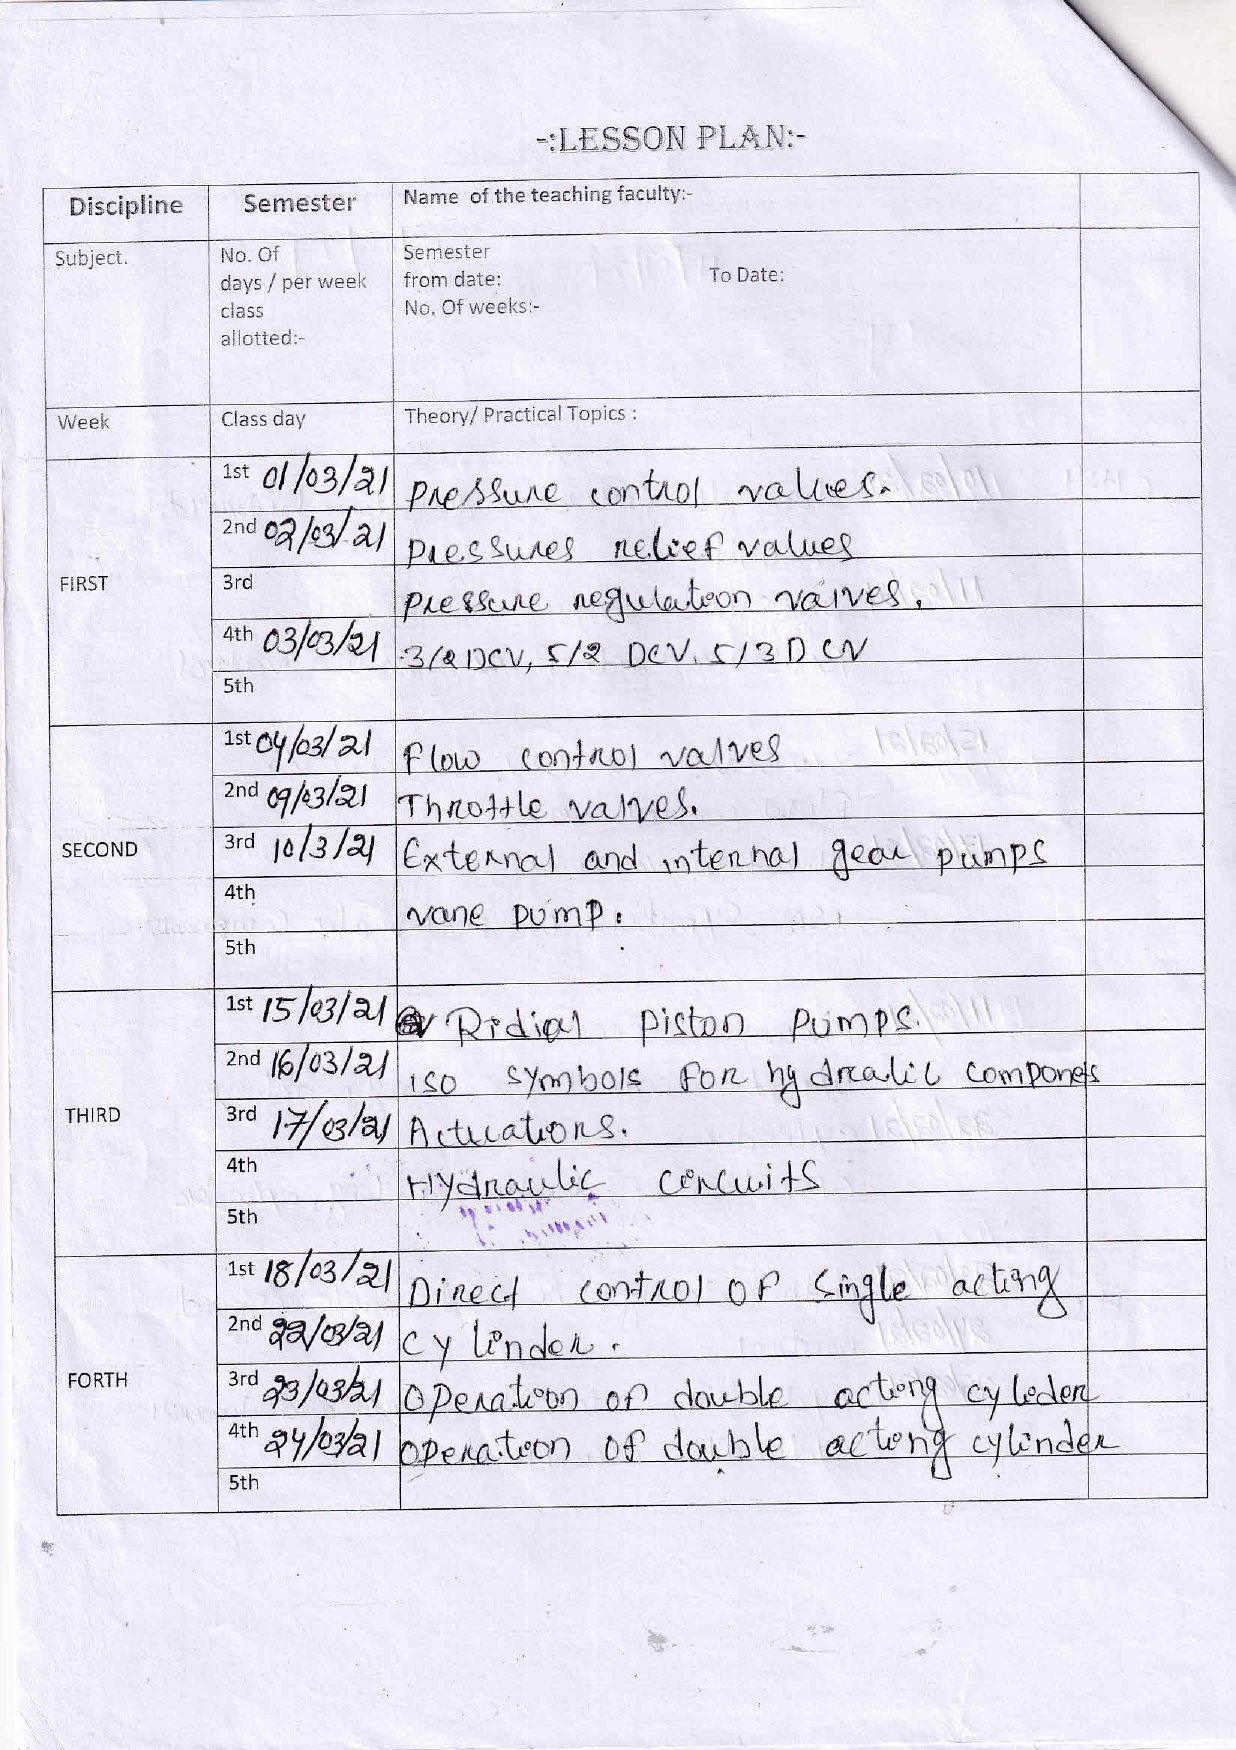 -:LESSON PLAN:-
Discipline Semester Name of the teaching faculty:-
Subject. No. Of days / per week class allotted:- Semester from date: To Date: No. Of weeks:-
Week Class day Theory/ Practical Topics :
FIRST
1st 01/03/21 Pressure control values.
2nd 02/03/21 Pressures relief values
3rd Pressure regulation valves.
4th 03/03/21 3/2 DCV, 5/2 DCV, 5/3 DCV
5th
SECOND
1st 04/03/21 Flow control valves
2nd 09/03/21 Throttle valves.
3rd 10/3/21 External and internal gear pumps
4th vane pump.
5th
THIRD
1st 15/03/21 Ridial piston pumps.
2nd 16/03/21 iso symbols for hydrealic componets
3rd 17/03/21 Actuations.
4th Hydraulic circuits
5th
FORTH
1st 18/03/21 Direct control of single acting
2nd 22/03/21 cylinder.
3rd 23/03/21 Operation of double acting cyleder
4th 24/03/21 operation of double acting cylinder
5th